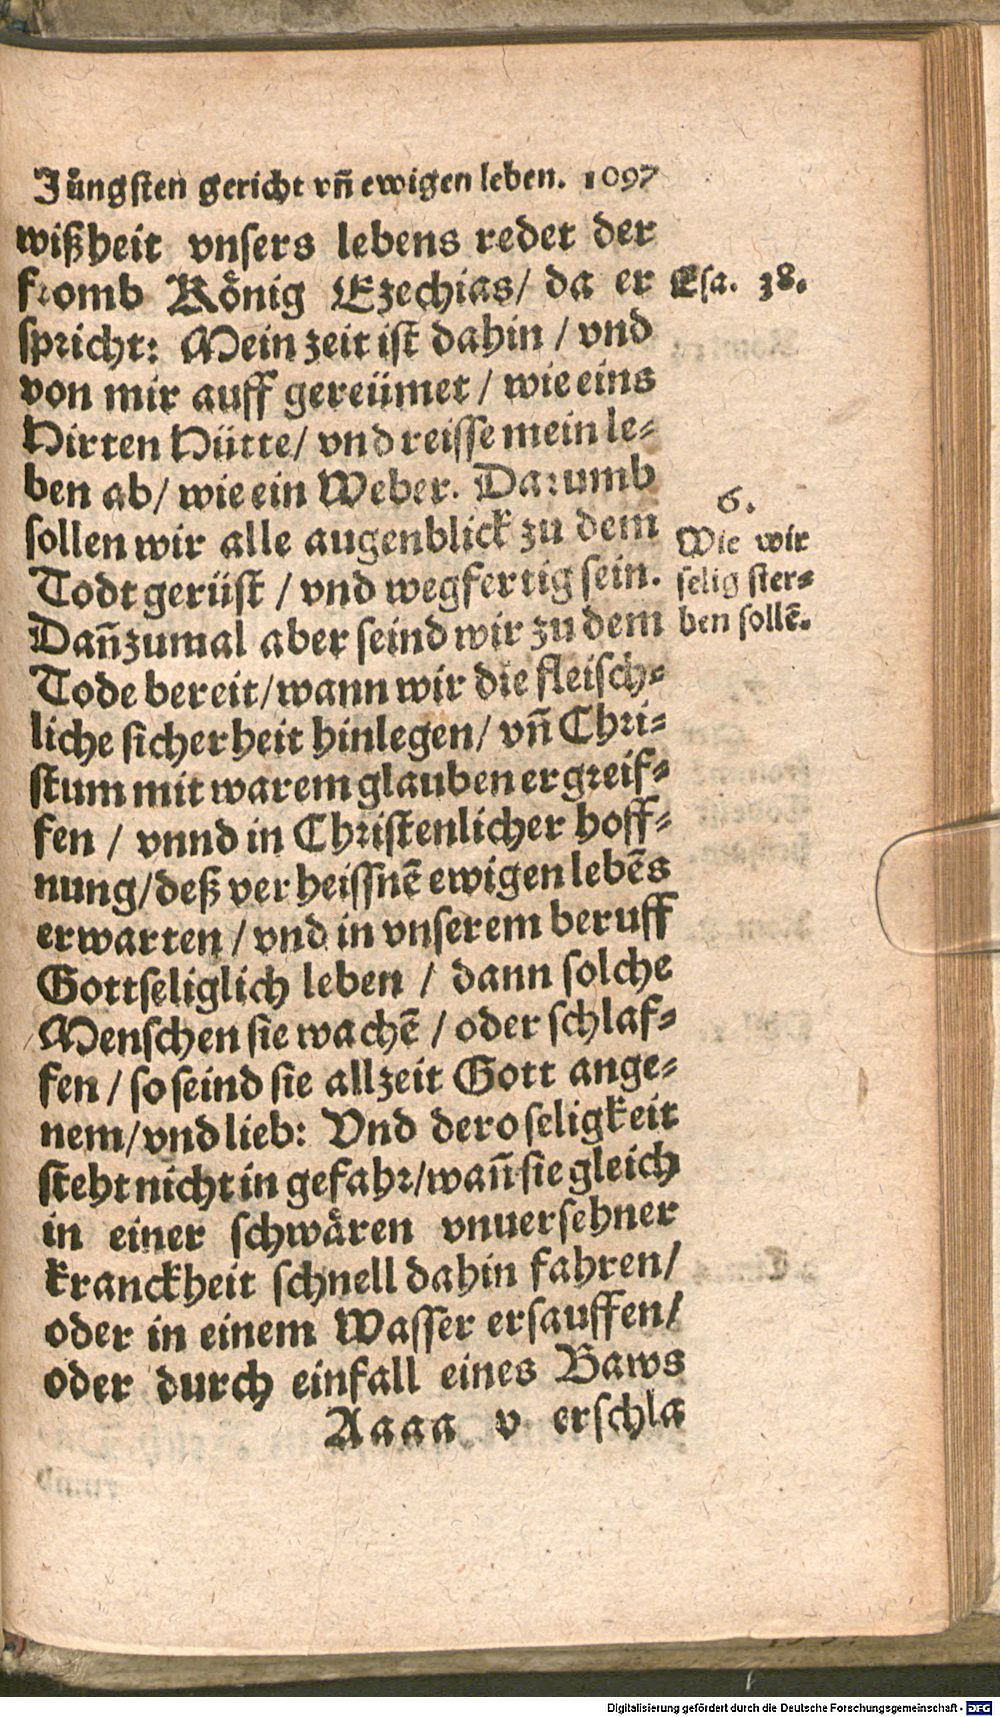 Jüngsten gericht vñ ewigen leben. 1097
wißheit vnsers lebens redet der
fromb König Ezechias/ da er
Esa. 38.
spricht: Mein zeit ist dahin / vnd
von mir auff gereümet / wie eins
Hirten Hütte/ vnd reisse mein le-
ben ab/ wie ein Weber. Darumb
sollen wir alle augenblick zu dem
Todt gerüst / vnd wegfertig sein.
Dañzumal aber seind wir zu dem
6.
Wie wir
selig ster-
ben sollẽ.
Tode bereit/wann wir die fleisch-
liche sicherheit hinlegen/ vñ Chri-
stum mit warem glauben ergreif-
fen / vnnd in Christenlicher hoff-
nung/deß verheissnẽ ewigen lebẽs
erwarten / vnd in vnserem beruff
Gottseliglich leben / dann solche
Menschen sie wachẽ / oder schlaf-
fen / so seind sie allzeit Gott ange-
nem/vnd lieb: Vnd dero seligkeit
steht nicht in gefahr/wañ sie gleich
in einer schwåren vnuersehner
kranckheit schnell dahin fahren/
oder in einem Wasser ersauffen/
oder durch einfall eines Baws
Aaaa v erschla
Digitalisierung gefördert durch die Deutsche Forschungsgemeinschaft - DFG